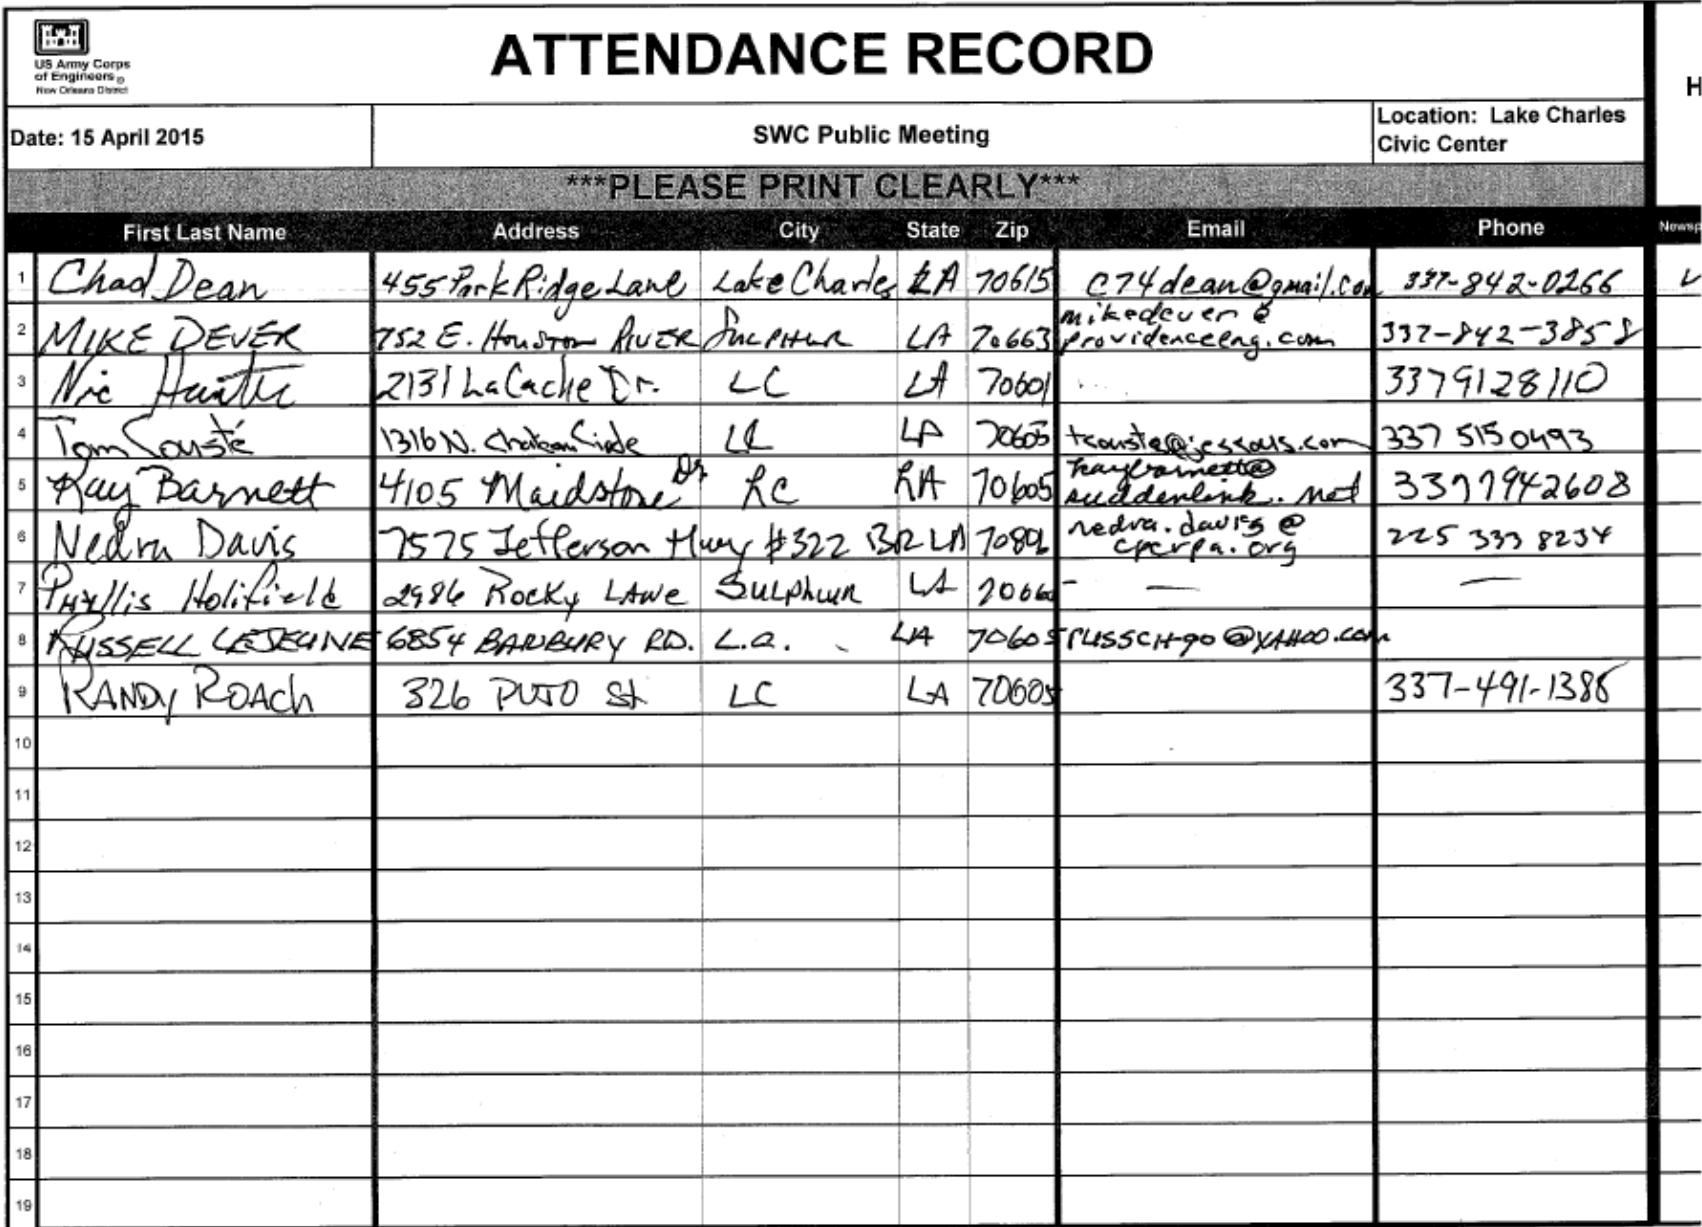 US Army Corps
of Engineers®
New Orleans District
ATTENDANCE RECORD
H
Date: 15 April 2015
SWC Public Meeting
Location: Lake Charles
Civic Center
***PLEASE PRINT CLEARLY***
First Last Name Address City State Zip Email Phone Newsp
1 Chad Dean 455 Park Ridge Lane Lake Charles LA 70615 c74dean@gmail.com 337-842-0266
2 MIKE DEVER 752 E. HOUSTON RIVER SULPHUR LA 70663 mikedever@
providenceeng.com 337-842-3858
3 Nic Hunter 2131 LaCache Dr. LC LA 70601 3379128110
4 Tom Cousté 1316 N. LC LA 70605 337 515 0493
5 Kay Barnett 4105 Maidstone Dr LC LA 70605 kaybarnett@
suddenlink.net 3377942608
6 Nedra Davis 7575 Jefferson Hwy #322 BR LA 70806 nedra.davis@
cpcrpa.org 225 333 8234
7 PHyllis Holifield 2986 Rocky LANE SULPHUR LA — —
8 RUSSELL LEJEUNE 6854 BANBURY RD. L.C. LA 70605 RUSSCH90@YAHOO.com
9 RANDY ROACH 326 PUJO St LC LA 70605 337-491-1386
10
11
12
13
14
15
16
17
18
19